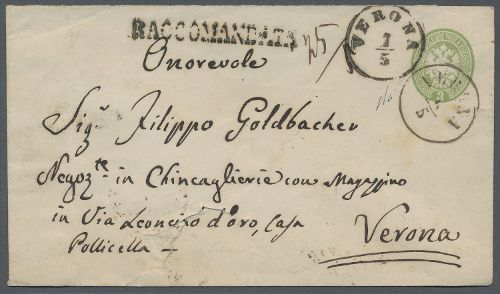 RACCOMANDATA
VERONA
1/5
Onorevole
3
Sigr Filippo Goldbacher
Negozte in Chincaglierie con Magazzino
in Via Leoncino d'oro, Casa
Pollicella —
Verona